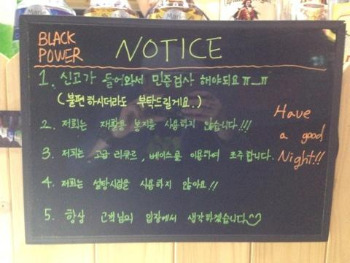 BLACK POWER
NOTICE
1. 신고가 들어와서 민증검사 해야되요 ㅠ_ㅠ
(불편하시더라도 부탁드릴게요.)
2. 저희는 재활용 하지 않습니다!!!
3. 저희는 고급 리큐르, 베이스를 이용하여 조주합니다.
4. 저희는 설탕시럽은 사용하지 않아요!!
5. 항상 고객님의 입장에서 생각하겠습니다
Have
a good
Night!!